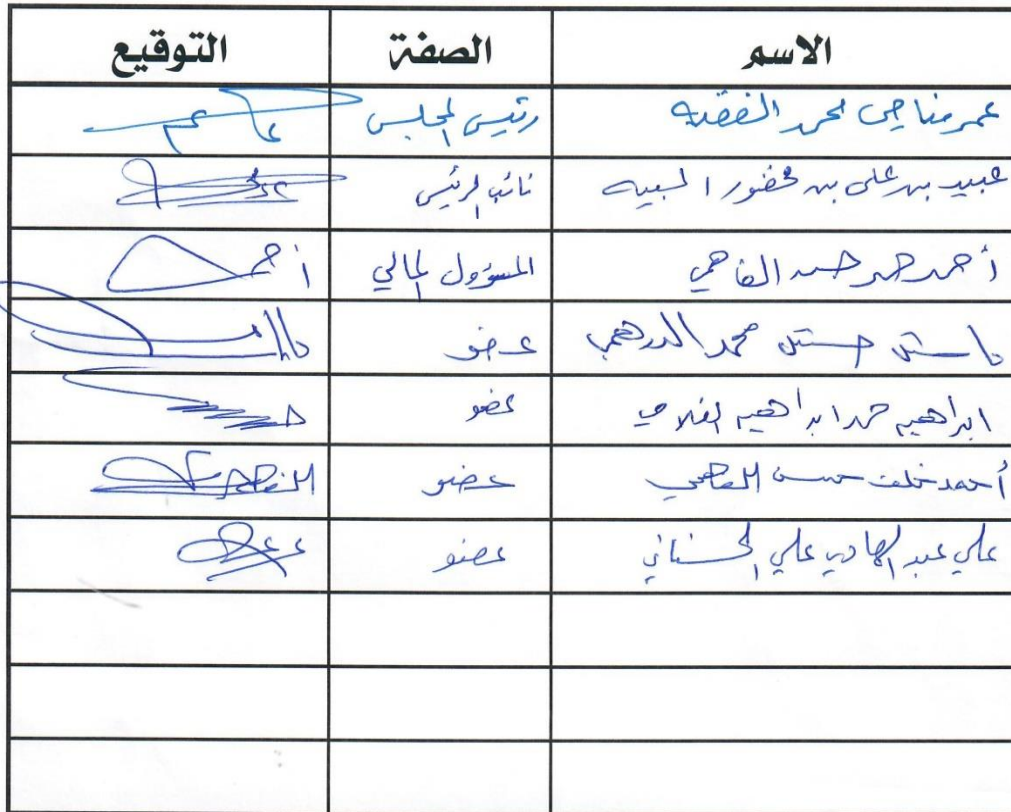 الاسم الصفة التوقيع
عمر مناجي محمد الفقيه رئيس المجلس
عبيد بن علي بن محضور السبيه نائب الرئيس
أحمد حمد حسن الفاهمي المسؤول المالي أحمد
حسن محمد الدرهمي عضو
ابراهيم حمد ابراهيم الفلاحي عضو
أحمد خلف حسن الفاهمي عضو
علي عبد الهادي علي الحسناني عضو